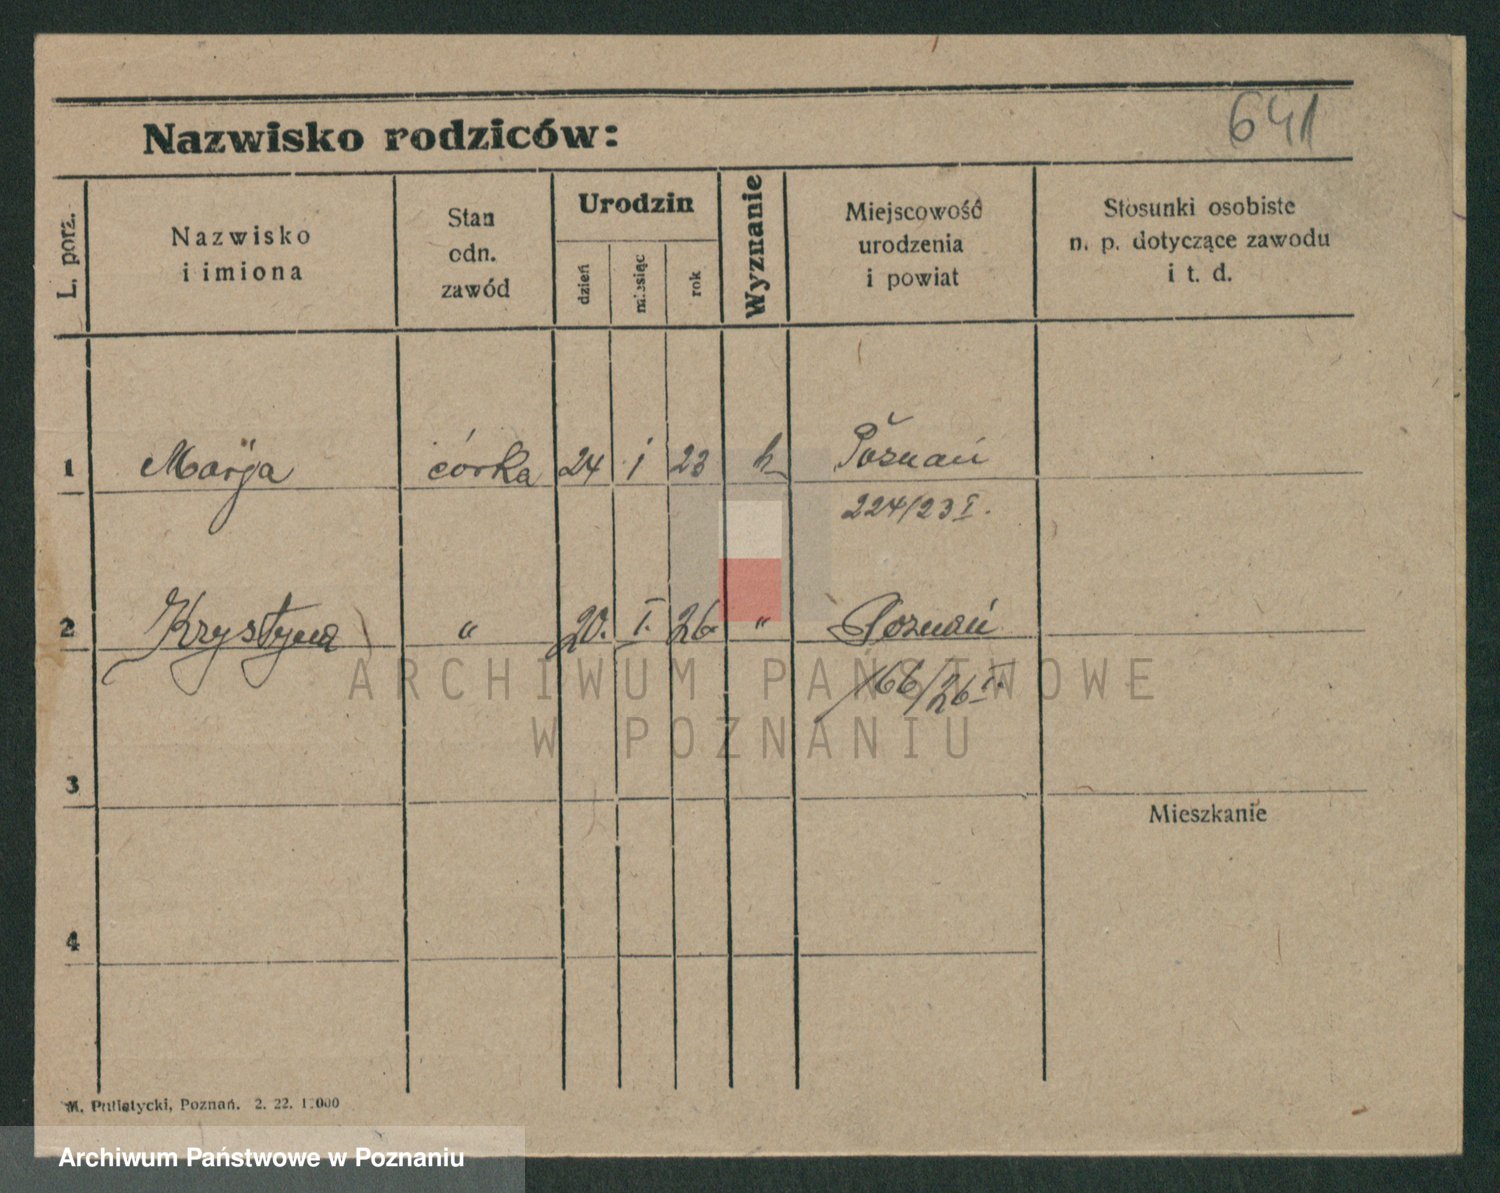 641
Nazwisko rodziców:
L. porz.
Nazwisko
i imiona
Stan
odn.
zawód
Urodzin
dzień
miesiąc
rok
Wyznanie
Miejscowość
urodzenia
i powiat
Stosunki osobiste
n. p. dotyczące zawodu
i t. d.
1 Marja córka 24 i 23 k Poznań
224/23 I.
2 Krystyna " 20. I. 26 " Poznań
166/26 I.
ARCHIWUM PAŃSTWOWE
W POZNANIU
3
Mieszkanie
4
M. Putiatycki, Poznań. 2. 22. 1:000
Archiwum Państwowe w Poznaniu